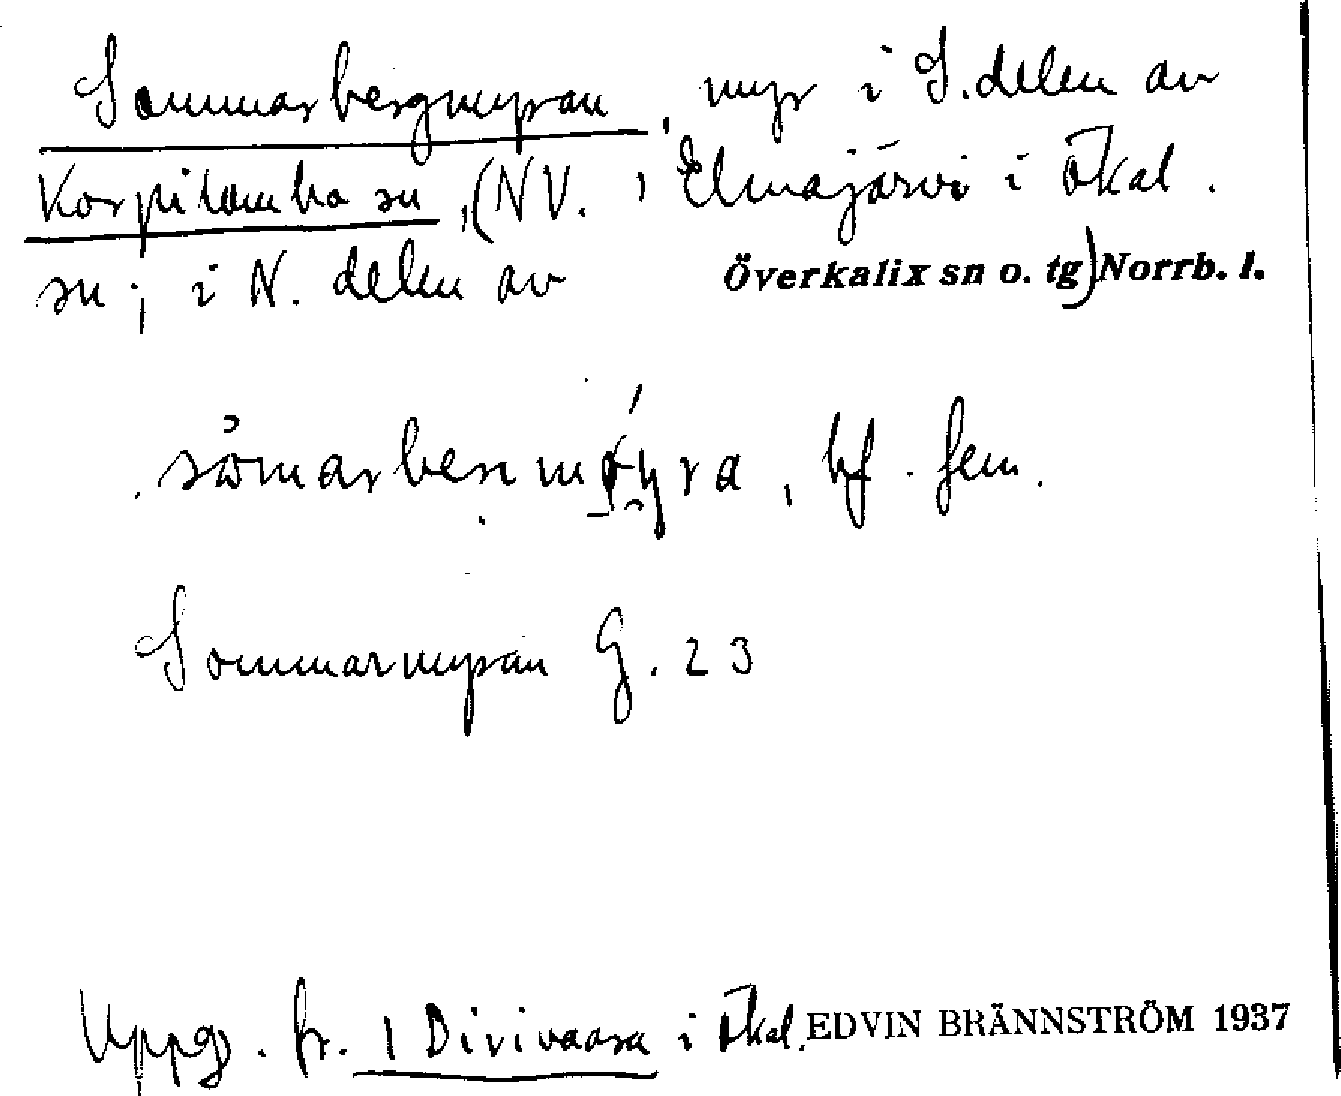 Sommarbergmyran, myr i S. delen av
Korpilombolo sn, (NV. , Elmajärvi i Ökal.
sn; i N. delen av Överkalix sn o. tg) Norrb. l.
bf. fem.
Sommarmyran G. 23
Uppg. fr. 1 Divivaara i Ökal. EDVIN BRÄNNSTRÖM 1937